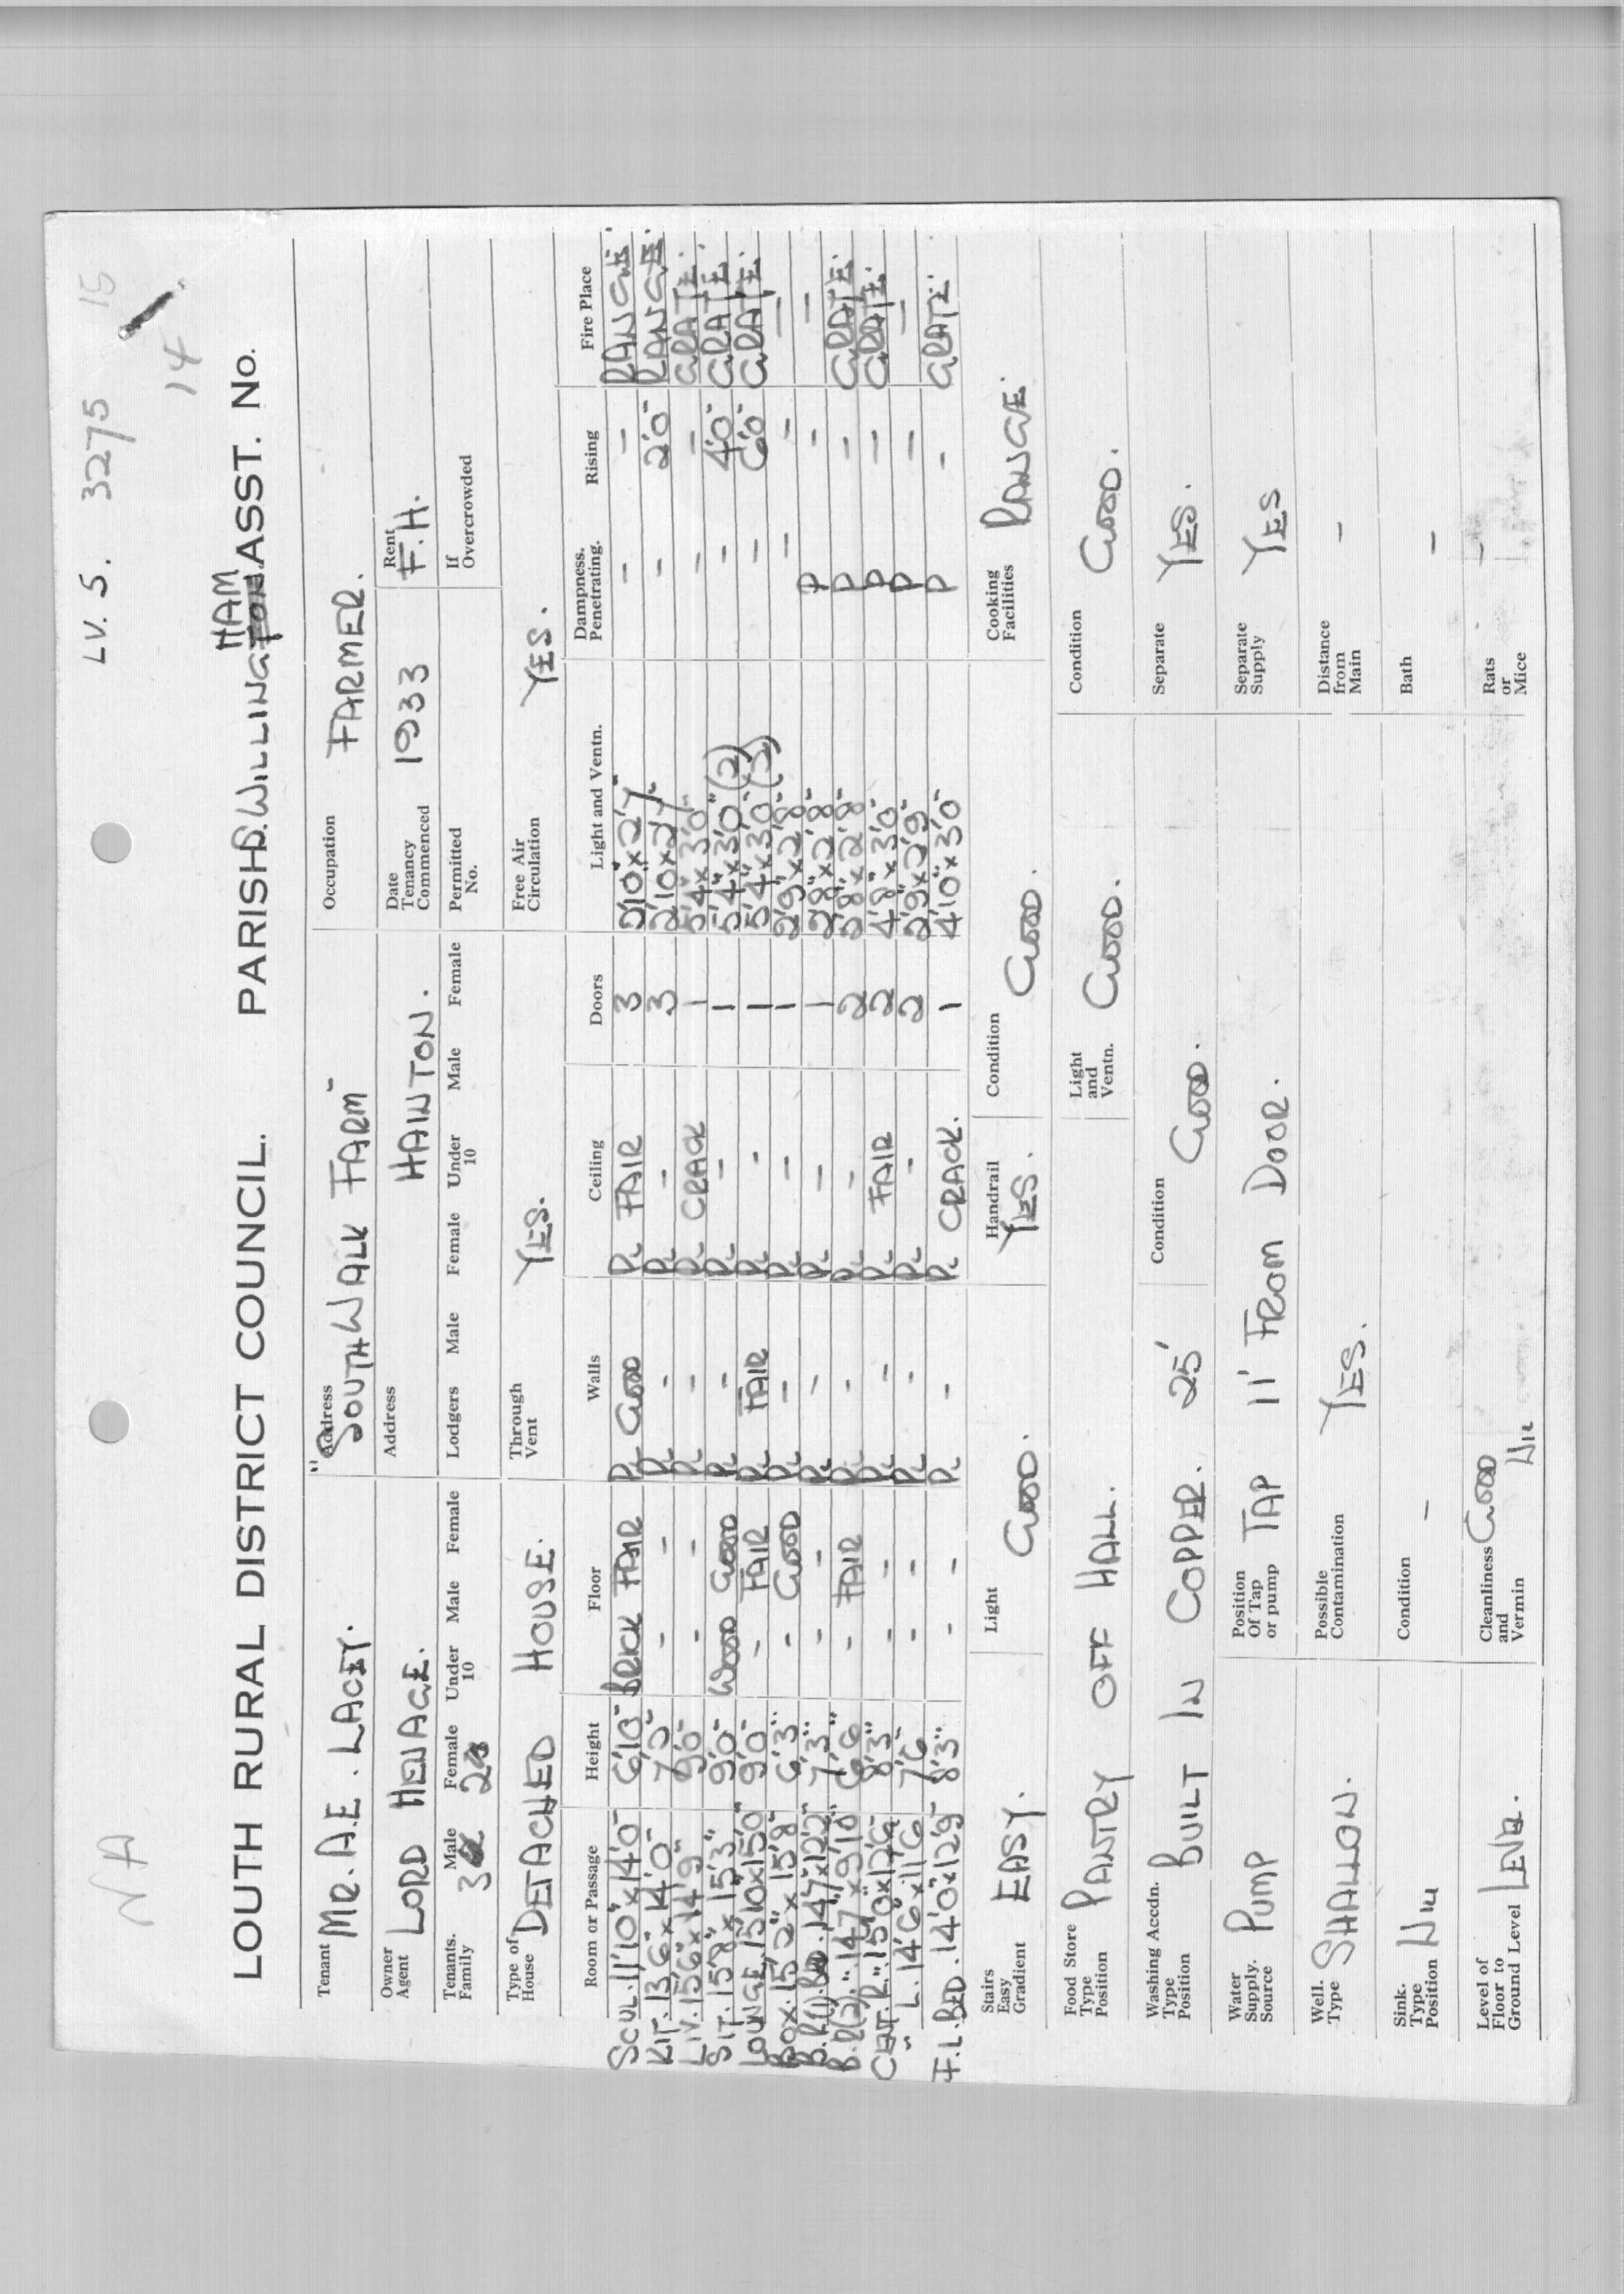 LV. 5. 3275 15
NA 14
LOUTH RURAL DISTRICT COUNCIL. PARISH S. WILLINGHAM ASST. No.
Tenant MR. A.E. LACEY. Address "SOUTH WALK FARM" Occupation FARMER.
Owner Agent LORD HENAGE. Address HAINTON. Date Tenancy Commenced 1933 Rent F.H.
Tenants. Family 3 Male 2 Female Under 10 Male Female Lodgers Male Female Under 10 Male Female Permitted No. If Overcrowded
Type of House DETACHED HOUSE. Through Vent YES. Free Air Circulation YES.
Room or Passage Height Floor Walls Ceiling Doors Light and Ventn. Dampness. Penetrating. Rising Fire Place
SCUL. 11'10" x 14'0" 6'10" BRICK FAIR PL GOOD PL FAIR 3 2'10" x 2'7" - - RANGE.
KIT. 13'6" x 14'0" 7'0" - - PL - PL - 3 2'10" x 2'7" - 2'0" RANGE
LIV. 15'6" x 14'9" 9'0" - - PL - PL CRACK 1 5'4" x 3'0" - - GRATE.
SIT. 15'8" x 15'3" 9'0" WOOD GOOD PL - PL - 1 5'4" x 3'0" (2) - 4'0" GRATE.
LOUNGE. 15'10" x 15'0" 9'0" - FAIR PL FAIR PL - 1 5'4" x 3'0" (2) - 6'0" GRATE.
BOX. 15'2" x 15'8" 6'3" - GOOD PL - PL - 1 2'9" x 2'8" - - -
B.R(1). BED. 14'7" x 12'2" 7'3" - - PL - PL - 1 2'8" x 2'8" P - -
B.R(2). " 14'7" x 9'10" 6'6" - FAIR PL - PL - 2 2'8" x 2'8" P - GRATE.
CENT. R. " 15'0" x 12'6" 8'3" - - PL - PL FAIR 2 4'8" x 3'0" P - GRATE.
" L. 14'6" x 11'6" 7'6" - - PL - PL - 2 2'9" x 2'9" P - -
F.L. BED. 14'0" x 12'9" 8'3" - - PL - PL CRACK. 1 4'10" x 3'0" P - GRATE.
Stairs Easy Gradient EASY. Light GOOD. Handrail YES. Condition GOOD. Cooking Facilities RANGE.
Food Store Type Position PANTRY OFF HALL. Light and Ventn. GOOD. Condition GOOD.
Washing Accdn. Type Position BUILT IN COPPER. 25' Condition GOOD. Separate YES.
Water Supply. Source PUMP Position Of Tap or pump TAP 11' FROM DOOR. Separate Supply YES
Well. Type SHALLOW. Possible Contamination YES. Distance from Main -
Sink. Type Position NIL Condition - Bath -
Level of Floor to Ground Level LEVEL. Cleanliness and Vermin GOOD NIL Rats or Mice -